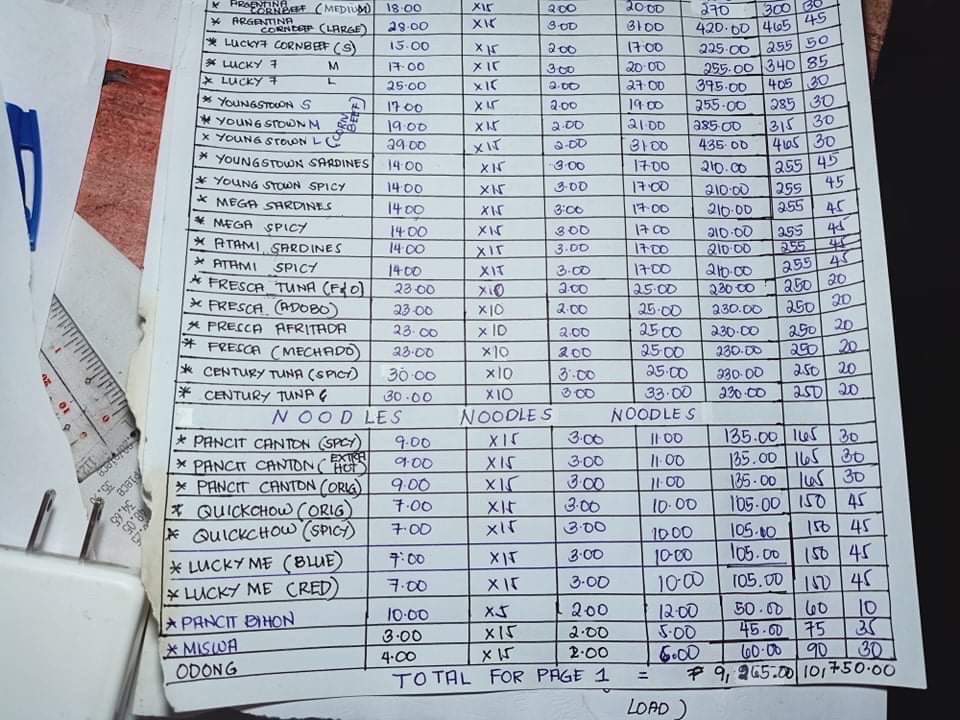 * ARGENTINA CORNBEEF (MEDIUM) 18.00 X15 2.00 20.00 270 300 30
* ARGENTINA CORNBEEF (LARGE) 28.00 X15 3.00 31.00 420.00 465 45
* LUCKY7 CORNBEEF (S) 15.00 X15 2.00 17.00 225.00 255 50
* LUCKY 7 M 17.00 X15 3.00 20.00 255.00 340 85
* LUCKY 7 L 25.00 X15 2.00 27.00 375.00 405 30
* YOUNGSTOWN S 17.00 X15 2.00 19.00 255.00 285 30
* YOUNGSTOWN M (CORN BEEF) 19.00 X15 2.00 21.00 285.00 315 30
* YOUNGSTOWN L 29.00 X15 2.00 31.00 435.00 465 30
* YOUNGSTOWN SARDINES 14.00 X15 3.00 17.00 210.00 255 45
* YOUNG STOWN SPICY 14.00 X15 3.00 17.00 210.00 255 45
* MEGA SARDINES 14.00 X15 3.00 17.00 210.00 255 45
* MEGA SPICY 14.00 X15 3.00 17.00 210.00 255 45
* ATAMI SARDINES 14.00 X15 3.00 17.00 210.00 255 45
* ATAMI SPICY 14.00 X15 3.00 17.00 210.00 255 45
* FRESCA TUNA (F&O) 23.00 X10 2.00 25.00 230.00 250 20
* FRESCA (ADOBO) 23.00 X10 2.00 25.00 230.00 250 20
* FRESCA AFRITADA 23.00 X10 2.00 25.00 230.00 250 20
* FRESCA (MECHADO) 23.00 X10 2.00 25.00 230.00 250 20
* CENTURY TUNA (SPICY) 30.00 X10 3.00 25.00 230.00 250 20
* CENTURY TUNA 30.00 X10 3.00 33.00 230.00 250 20
NOODLES NOODLES NOODLES
* PANCIT CANTON (SPCY) 9.00 X15 3.00 11.00 135.00 165 30
* PANCIT CANTON (EXTRA HOT) 9.00 X15 3.00 11.00 135.00 165 30
* PANCIT CANTON (ORIG) 9.00 X15 3.00 11.00 135.00 165 30
* QUICKCHOW (ORIG) 7.00 X15 3.00 10.00 105.00 150 45
* QUICKCHOW (SPICY) 7.00 X15 3.00 10.00 105.00 150 45
* LUCKY ME (BLUE) 7.00 X15 3.00 10.00 105.00 150 45
* LUCKY ME (RED) 7.00 X15 3.00 10.00 105.00 150 45
* PANCIT BIHON 10.00 X5 2.00 12.00 50.00 60 10
* MISWA 3.00 X15 2.00 5.00 45.00 75 35
ODONG 4.00 X15 2.00 6.00 60.00 90 30
TOTAL FOR PAGE 1 = ₱ 9,265.00 10,750.00
LOAD)